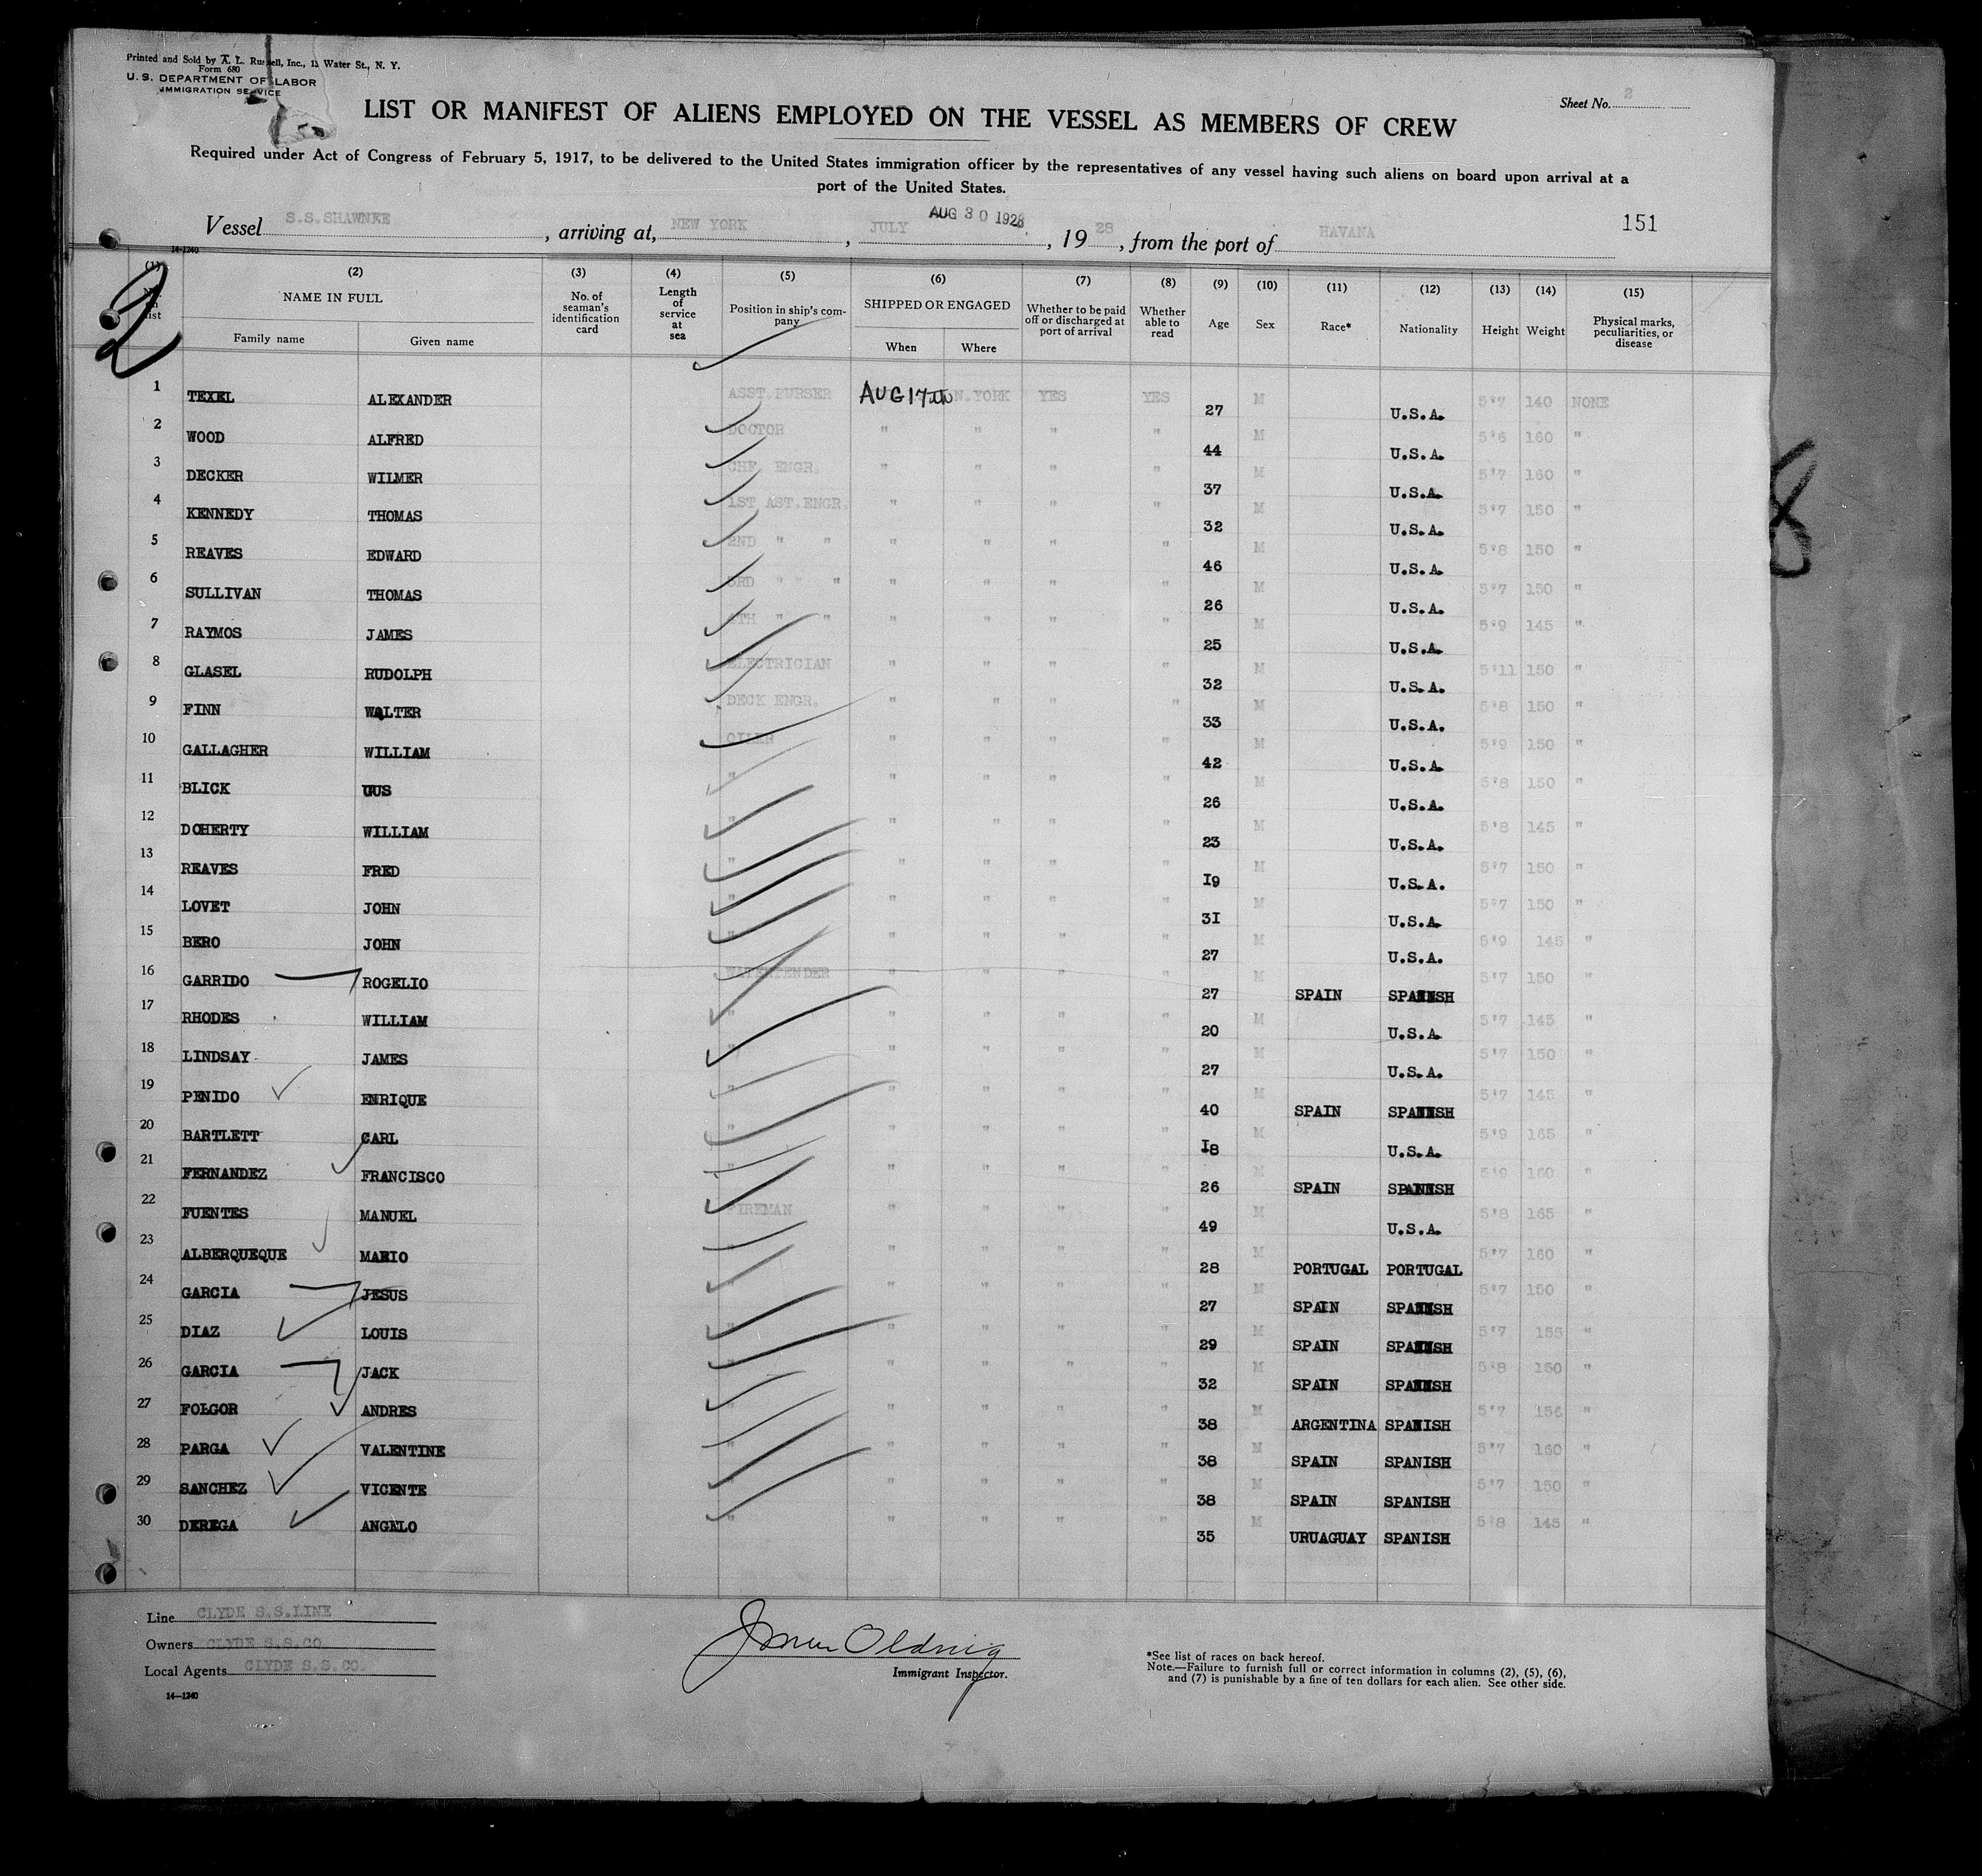 Printed and Sold by A. L. Russell, Inc., 12 Water St., N. Y.
Form 680
U. S. DEPARTMENT OF LABOR
IMMIGRATION SERVICE
Sheet No. 2
LIST OR MANIFEST OF ALIENS EMPLOYED ON THE VESSEL AS MEMBERS OF CREW
Required under Act of Congress of February 5, 1917, to be delivered to the United States immigration officer by the representatives of any vessel having such aliens on board upon arrival at a
port of the United States.
AUG 30 1928
Vessel S.S.SHAWNEE, arriving at, NEW YORK, JULY, 1928, from the port of HAVANA
151
14-1240
2
(1) (2) (3) (4) (5) (6) (7) (8) (9) (10) (11) (12) (13) (14) (15)
No. on list NAME IN FULL Family name Given name No. of seaman's identification card Length of service at sea Position in ship's company SHIPPED OR ENGAGED When Where Whether to be paid off or discharged at port of arrival Whether able to read Age Sex Race* Nationality Height Weight Physical marks, peculiarities, or disease
1 TEXEL ALEXANDER ASST.PURSER AUG 17th N.YORK YES YES 27 M U.S.A. 5'7 140 NONE
2 WOOD ALFRED DOCTOR " " " " 44 M U.S.A. 5'6 160 "
3 DECKER WILMER CHF. ENGR. " " " " 37 M U.S.A. 5'7 160 "
4 KENNEDY THOMAS 1ST AST.ENGR. " " " " 32 M U.S.A. 5'7 150 "
5 REAVES EDWARD 2ND " " " " " " 46 M U.S.A. 5'8 150 "
6 SULLIVAN THOMAS 3RD " " " " " " " 26 M U.S.A. 5'7 150 "
7 RAYMOS JAMES 4TH " " " " " " 25 M U.S.A. 5'9 145 "
8 GLASEL RUDOLPH ELECTRICIAN " " " " 32 M U.S.A. 5'11 150 "
9 FINN WALTER DECK ENGR. " " " " 33 M U.S.A. 5'8 150 "
10 GALLAGHER WILLIAM OILER " " " " 42 M U.S.A. 5'9 150 "
11 BLICK GUS " " " " " 26 M U.S.A. 5'8 150 "
12 DOHERTY WILLIAM " " " " " 23 M U.S.A. 5'8 145 "
13 REAVES FRED " " " " " I9 M U.S.A. 5'7 150 "
14 LOVET JOHN " " " " " 3I M U.S.A. 5'7 150 "
15 BERO JOHN " " " " " 27 M U.S.A. 5'9 145 "
16 GARRIDO ROGELIO WATERTENDER " " " " 27 M SPAIN SPANISH 5'7 150 "
17 RHODES WILLIAM " " " " " 20 M U.S.A. 5'7 145 "
18 LINDSAY JAMES " " " " " 27 M U.S.A. 5'7 150 "
19 PENIDO ENRIQUE " " " " " 40 M SPAIN SPANISH 5'7 145 "
20 BARTLETT CARL " " " " " I8 M U.S.A. 5'9 165 "
21 FERNANDEZ FRANCISCO " " " " " 26 M SPAIN SPANISH 5'9 160 "
22 FUENTES MANUEL FIREMAN " " " " 49 M U.S.A. 5'8 165 "
23 ALBERQUEQUE MARIO " " " " " 28 M PORTUGAL PORTUGAL 5'7 160 "
24 GARCIA JESUS " " " " " 27 M SPAIN SPANISH 5'7 150 "
25 DIAZ LOUIS " " " " " 29 M SPAIN SPANISH 5'7 155 "
26 GARCIA JACK " " " " " 32 M SPAIN SPANISH 5'8 150 "
27 FOLGOR ANDRES " " " " " 38 M ARGENTINA SPANISH 5'7 156 "
28 PARGA VALENTINE " " " " " 38 M SPAIN SPANISH 5'7 160 "
29 SANCHEZ VICENTE " " " " " 38 M SPAIN SPANISH 5'7 150 "
30 DEREGA ANGALO " " " " " 35 M URUAGUAY SPANISH 5'8 145 "
8
Line CLYDE S.S.LINE
Owners CLYDE S.S.CO.
Local Agents CLYDE S.S.CO.
14—1240
Immigrant Inspector.
*See list of races on back hereof.
Note.—Failure to furnish full or correct information in columns (2), (5), (6),
and (7) is punishable by a fine of ten dollars for each alien. See other side.